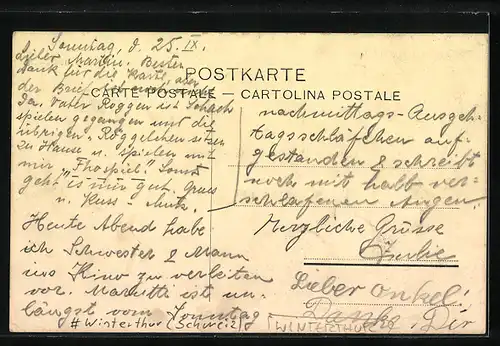 Sonntag, d. 25. IX.
Lieber Martin. Besten
Dank für die Karte, aber
der Brief
POSTKARTE
CARTE POSTALE — CARTOLINA POSTALE
Der Vater Roggen ist Schach
spielen gegangen und die
übrigen Röggelchen sitzen
zu Hause u. spielen mit
mir Sonst
geht es mir gut. Gruss
u. Kuss
Heute Abend habe
ich Schwester & Mann
ins Kino zu verleiten
vor. ist un-
längst vom Sonntag
nachmittags-Ausgeh-
tagsschläfchen auf-
gestanden & schreibt
noch mit halb ver-
schlafenen Augen.
Herzliche Grüsse
Lieber Onkel!
Danke Dir
# Winterthur (Schweiz)
WINTERTHUR